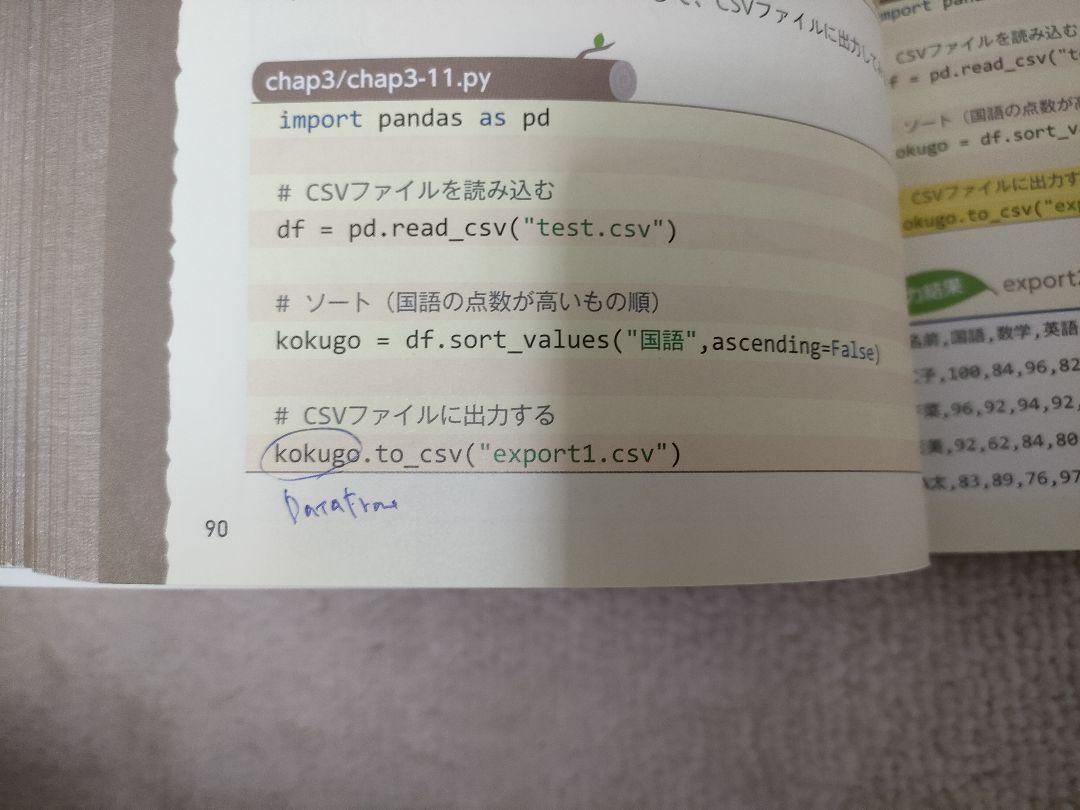 、CSVファイルに出力して
chap3/chap3-11.py
import pandas as pd
# CSVファイルを読み込む
df = pd.read_csv("test.csv")
# ソート（国語の点数が高いもの順）
kokugo = df.sort_values("国語",ascending=False)
# CSVファイルに出力する
kokugo.to_csv("export1.csv")
90
import
CSVファイルを読み込む
= pd.read_csv("
ソート（国語の点数が
kokugo = df.sort_
CSVファイルに出力す
kokugo.to_csv("
結果
名前,国語,数学,英語
子,100,84,96,82
菜,96,92,94,92,
美,92,62,84,80
太,83,89,76,97